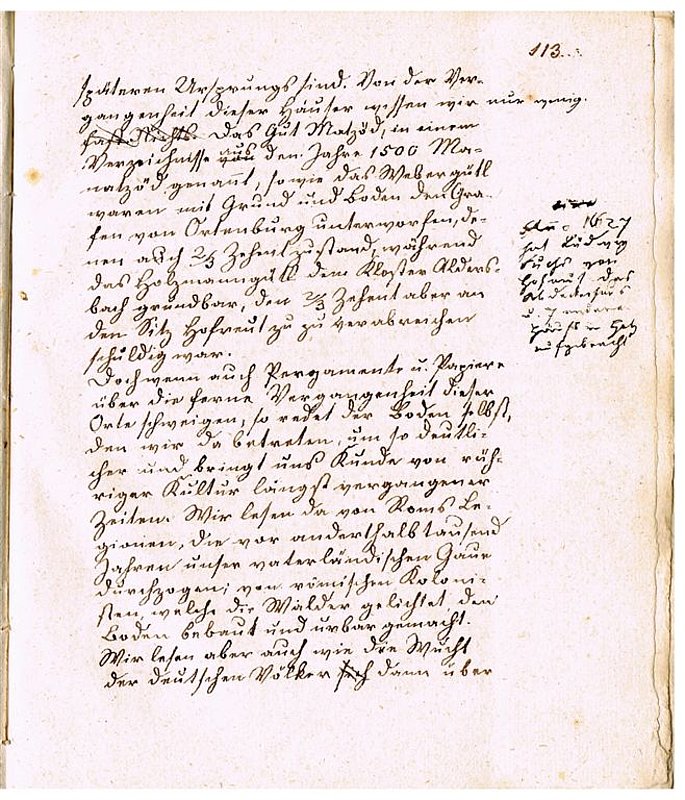 113.
späteren Ursprungs sind. Von der Ver-
gangenheit dieser Häuser wissen wir nur wenig.
fast Nichts. Das Gut Matzöd, in einem
Verzeichnisse aus den Jahre 1500 Ma-
natzöd genannt, sowie das Webergütl
waren mit Grund und Boden den Gra-
fen von Ortenburg unterworfen, de-
nen auch 2/3 Zehent zustand, während
das Holzmanngütl dem Kloster Alders-
bach grundbar, den 2/3 Zehent aber an
den Sitz Hofreut zu zu verabreichen
schuldig war.
Doch wenn auch Pergamente u. Papiere
über die ferne Vergangenheit dieser
Orte schweigen, so redet der Boden selbst,
den wir da betreten, um so deutli-
cher und bringt uns Kunde von rüh-
riger Kultur längst vergangener
Zeiten. Wir lesen da von Roms Le-
gionen, die vor anderthalbtausend
Jahren unser vaterländischen Gaue
durchzogen; von römischen Koloni-
sten, welche die Wälder gelichtet, den
Boden bebaut und urbar gemacht.
Wir lesen aber auch wie die Wucht
der deutschen Völker sich dann über
1627
hat Ludwig
Fuchs von
Hofreut das
u. 7 andere